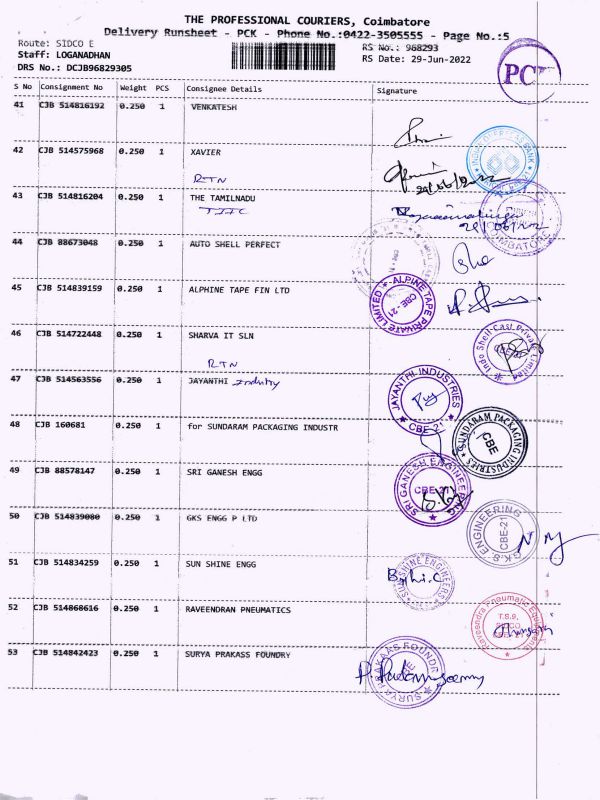 THE PROFESSIONAL COURIERS, Coimbatore
Delivery Runsheet - PCK - Phone No.:0422-3505555 - Page No.:5
Route: SIDCO E
RS No.: 968293
Staff: LOGANADHAN
RS Date: 29-Jun-2022
DRS No.: DCJB96829305
PCK
S No Consignment No Weight PCS Consignee Details Signature
41 CJB 514816192 0.250 1 VENKATESH
42 CJB 514575968 0.250 1 XAVIER
RTN
INDIAN OVERSEAS BANK
43 CJB 514816204 0.250 1 THE TAMILNADU
TIIC
COIMBATORE
44 CJB 88673048 0.250 1 AUTO SHELL PERFECT
45 CJB 514839159 0.250 1 ALPHINE TAPE FIN LTD
ALPINE TAPE PRIVATE LIMITED
CBE-21
46 CJB 514722448 0.250 1 SHARVA IT SLN
RTN
Indo Shell-Cast Private Limited
47 CJB 514563556 0.250 1 JAYANTHI Industry
JAYANTHI INDUSTRIES
CBE-21
48 CJB 160681 0.250 1 for SUNDARAM PACKAGING INDUSTR
SUNDARAM PACKAGING INDUSTRIES
CBE
49 CJB 88578147 0.250 1 SRI GANESH ENGG
SRI GANESH ENGINEERING
CBE-21
50 CJB 514839080 0.250 1 GKS ENGG P LTD
G.K.S. ENGINEERING
CBE-21
51 CJB 514834259 0.250 1 SUN SHINE ENGG
SUNSHINE ENGINEERS
52 CJB 514868616 0.250 1 RAVEENDRAN PNEUMATICS
Raveendra Pneumatic Equipments
T.S.9,
53 CJB 514842423 0.250 1 SURYA PRAKASS FOUNDRY
SURYA PRAKAAS FOUNDRY